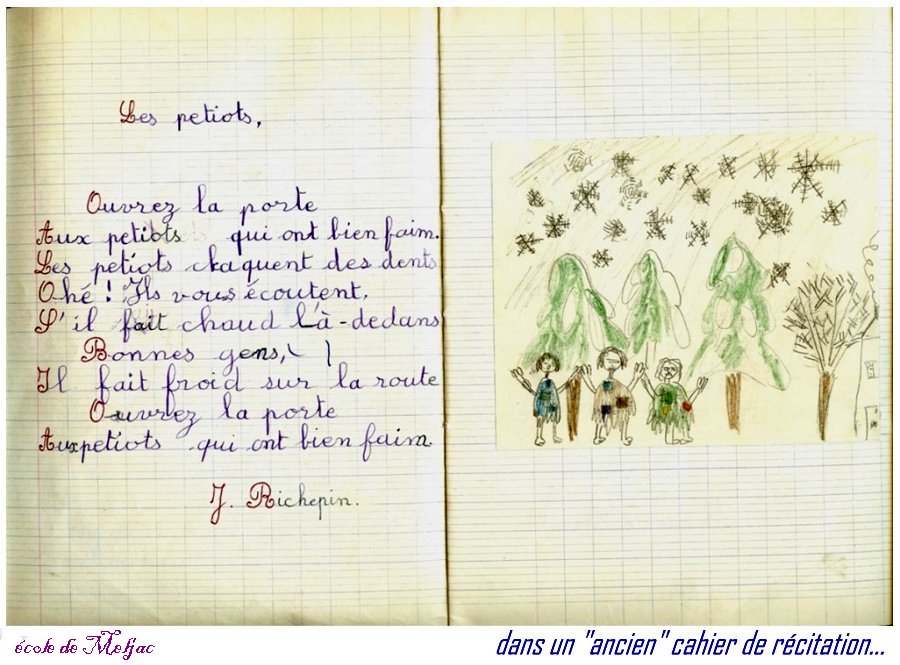 Les petiots,
Ouvrez la porte
Aux petiots qui ont bien faim.
Les petiots claquent des dents
Ohé ! Ils vous écoutent,
S'il fait chaud là-dedans
Bonnes gens,
Il fait froid sur la route
Ouvrez la porte
Aux petiots qui ont bien faim.
J. Richepin.
école de Meljac
dans un "ancien" cahier de récitation...